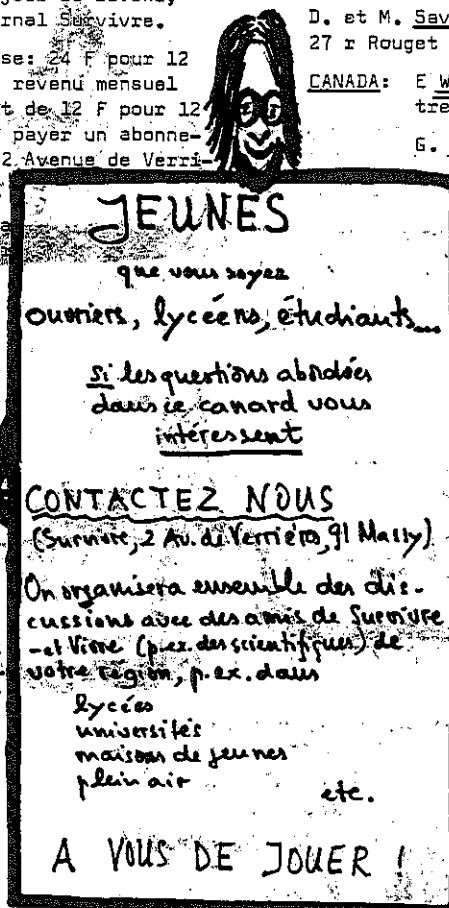 rnal Survivre.
se: 24 F pour 12
revenu mensuel
t de 12 F pour 12
payer un abonne-
2 Avenue de Verri-
D. et M. Sav
27 r Rouget
CANADA: E W
tre
G.
JEUNES
que vous soyez
ouvriers, lycéens, étudiants...
si les questions abordées
dans ce canard vous
intéressent
CONTACTEZ NOUS
(Survivre, 2 Av. de Verrières, 91 Massy)
On organisera ensemble des dis-
cussions avec des amis de Survivre
-et Vivre (p.ex. des scientifiques) de
votre région, p.ex. dans
lycées
universités
maisons de jeunes
plein air
etc.
A VOUS DE JOUER !